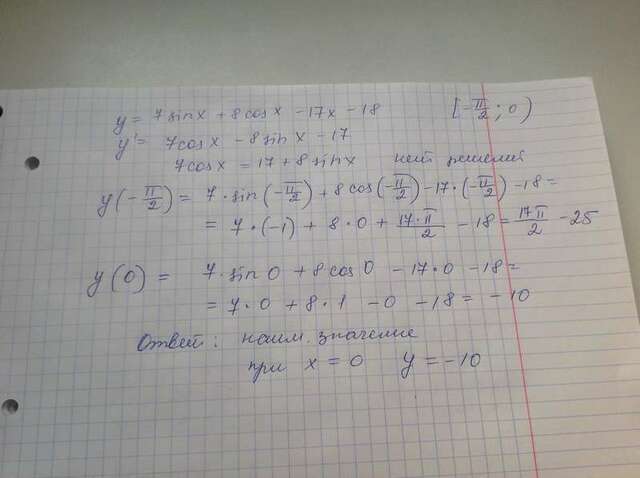 y = 7 sin x + 8 cos x − 17x − 18 [−π/2; 0)
y' = 7 cos x − 8 sin x − 17
7 cos x = 17 + 8 sin x нет решений
y(−π/2) = 7 · sin(−π/2) + 8 cos(−π/2) − 17 · (−π/2) − 18 =
= 7 · (−1) + 8 · 0 + 17·π/2 − 18 = 17π/2 − 25
y(0) = 7 · sin 0 + 8 cos 0 − 17 · 0 − 18 =
= 7 · 0 + 8 · 1 − 0 − 18 = −10
Ответ: наим. значение
при x = 0 y = −10